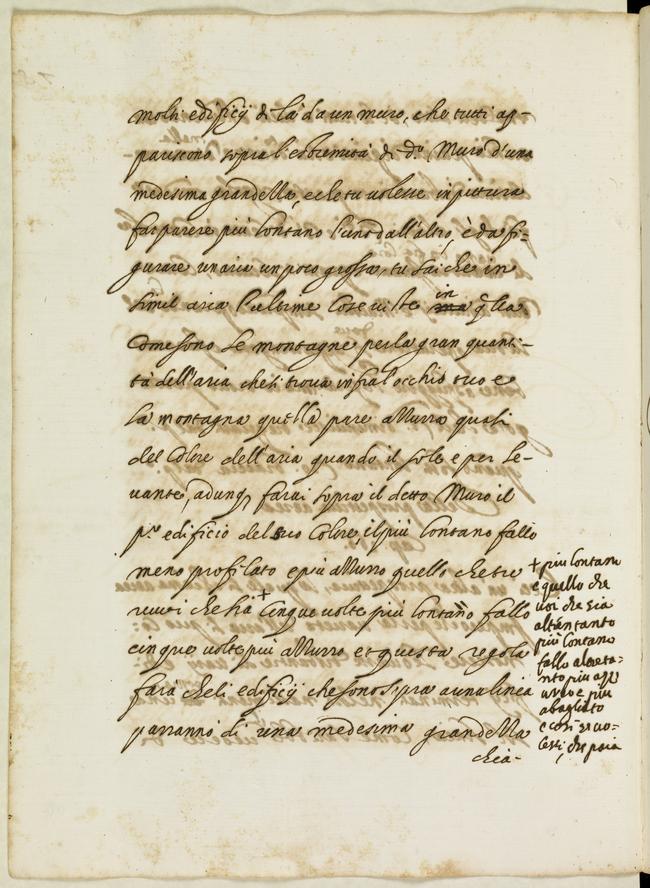 molti edificij di là da un muro, che tutti ap-
pariscono sopra l'estremità di d.º Muro d'una
medesima grandezza, e che tu volesse in pittura
far parere più lontano l'uno dall'altro, è da fi-
gurare un aria un poco grossa, tu sai che in
simil aria l'ulteme cose viste in q.lla
Come sono le montagne per la gran quanti-
tà dell'aria che si trova infra l'occhio tuo e
la montagna quella pare azzurra quasi
del Colore dell'aria quando il sole è per le-
vante, adunq3 farai sopra il detto Muro il
p.º edificio del suo Colore, il più lontano fallo
meno profilato e più azzurro quello che tu
vuoi che sia + Cinque volte più lontano fallo
cinque volte più azzurro et questa regola
farà che li edificij che sono sopra a una linea
parranno di una medesima grandezza
chia-
+ più lontano
e quello che
voi che sia
altrettanto
più lontano
fallo altreta-
nto più azz
urro e più
abagliato
e cosi se vo-
lessi, che paia